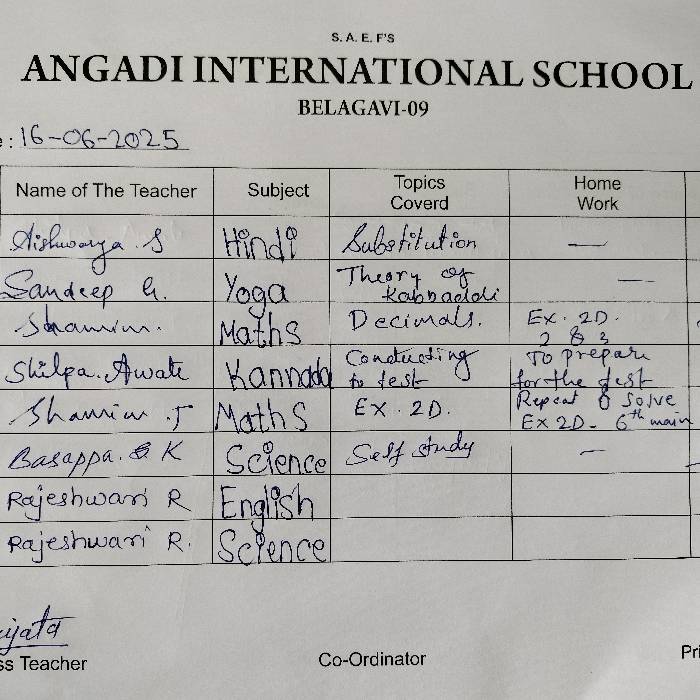 S. A. E. F'S
ANGADI INTERNATIONAL SCHOOL
BELAGAVI-09
: 16-06-2025
Name of The Teacher Subject Topics Coverd Home Work
Aishwarya .S Hindi Substitution —
Sandeep G. Yoga Theory of Kabbaddi —
Shamim. Maths Decimals. Ex. 2D. 2 & 3
Shilpa. Awate Kannada Conducting to test To prepare for the test
Shamim .J Maths EX. 2D. Repeat & Solve EX 2D- 6th main
Basappa. K Science Self study —
Rajeshwari R English
Rajeshwari R. Science
ss Teacher Co-Ordinator Pri